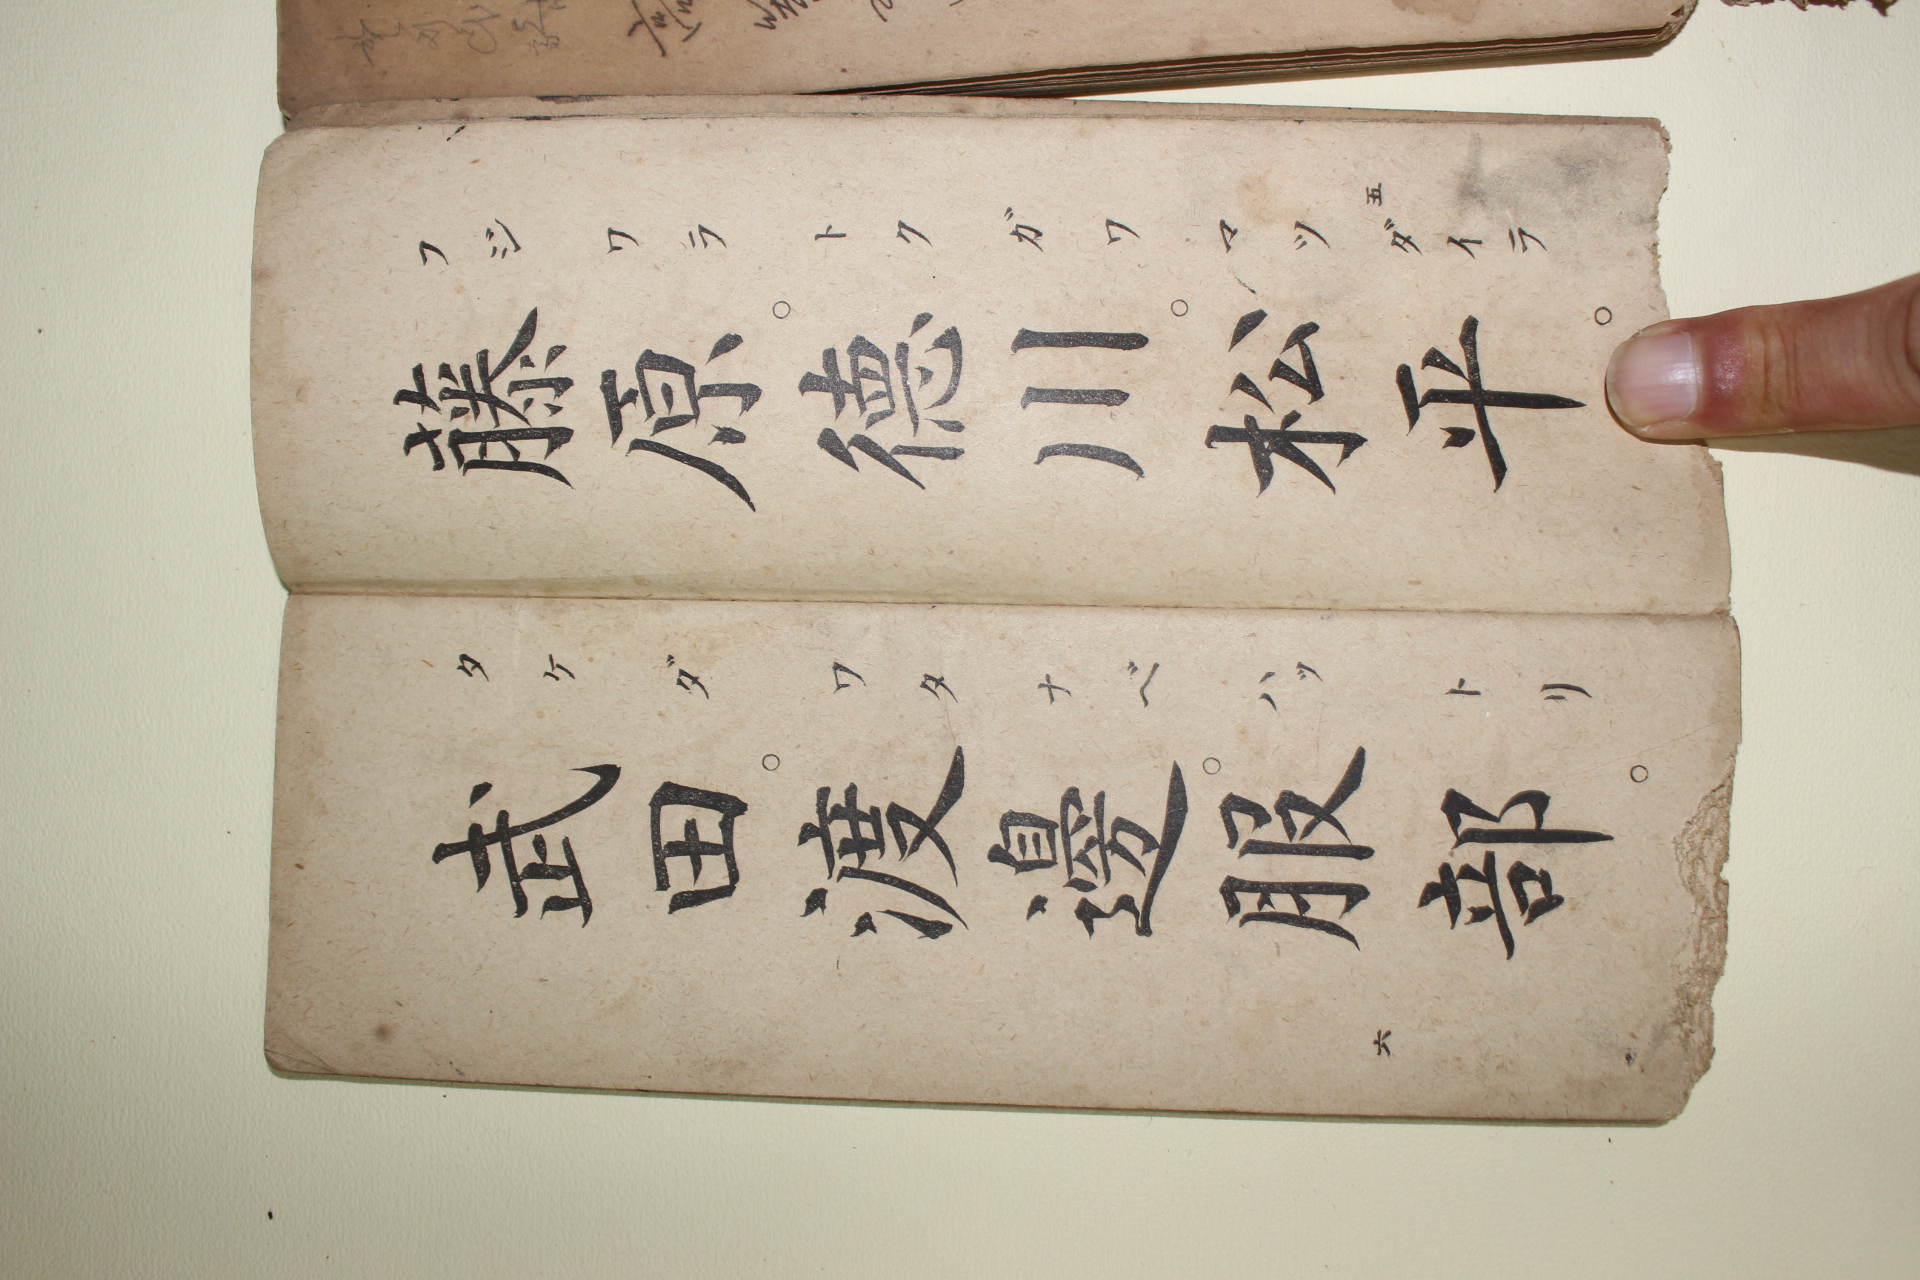 五
フジワラトクガワマツダイラ
藤原○徳川○松平○
タケダワタナベハツトリ
武田○渡邊○服部○
六